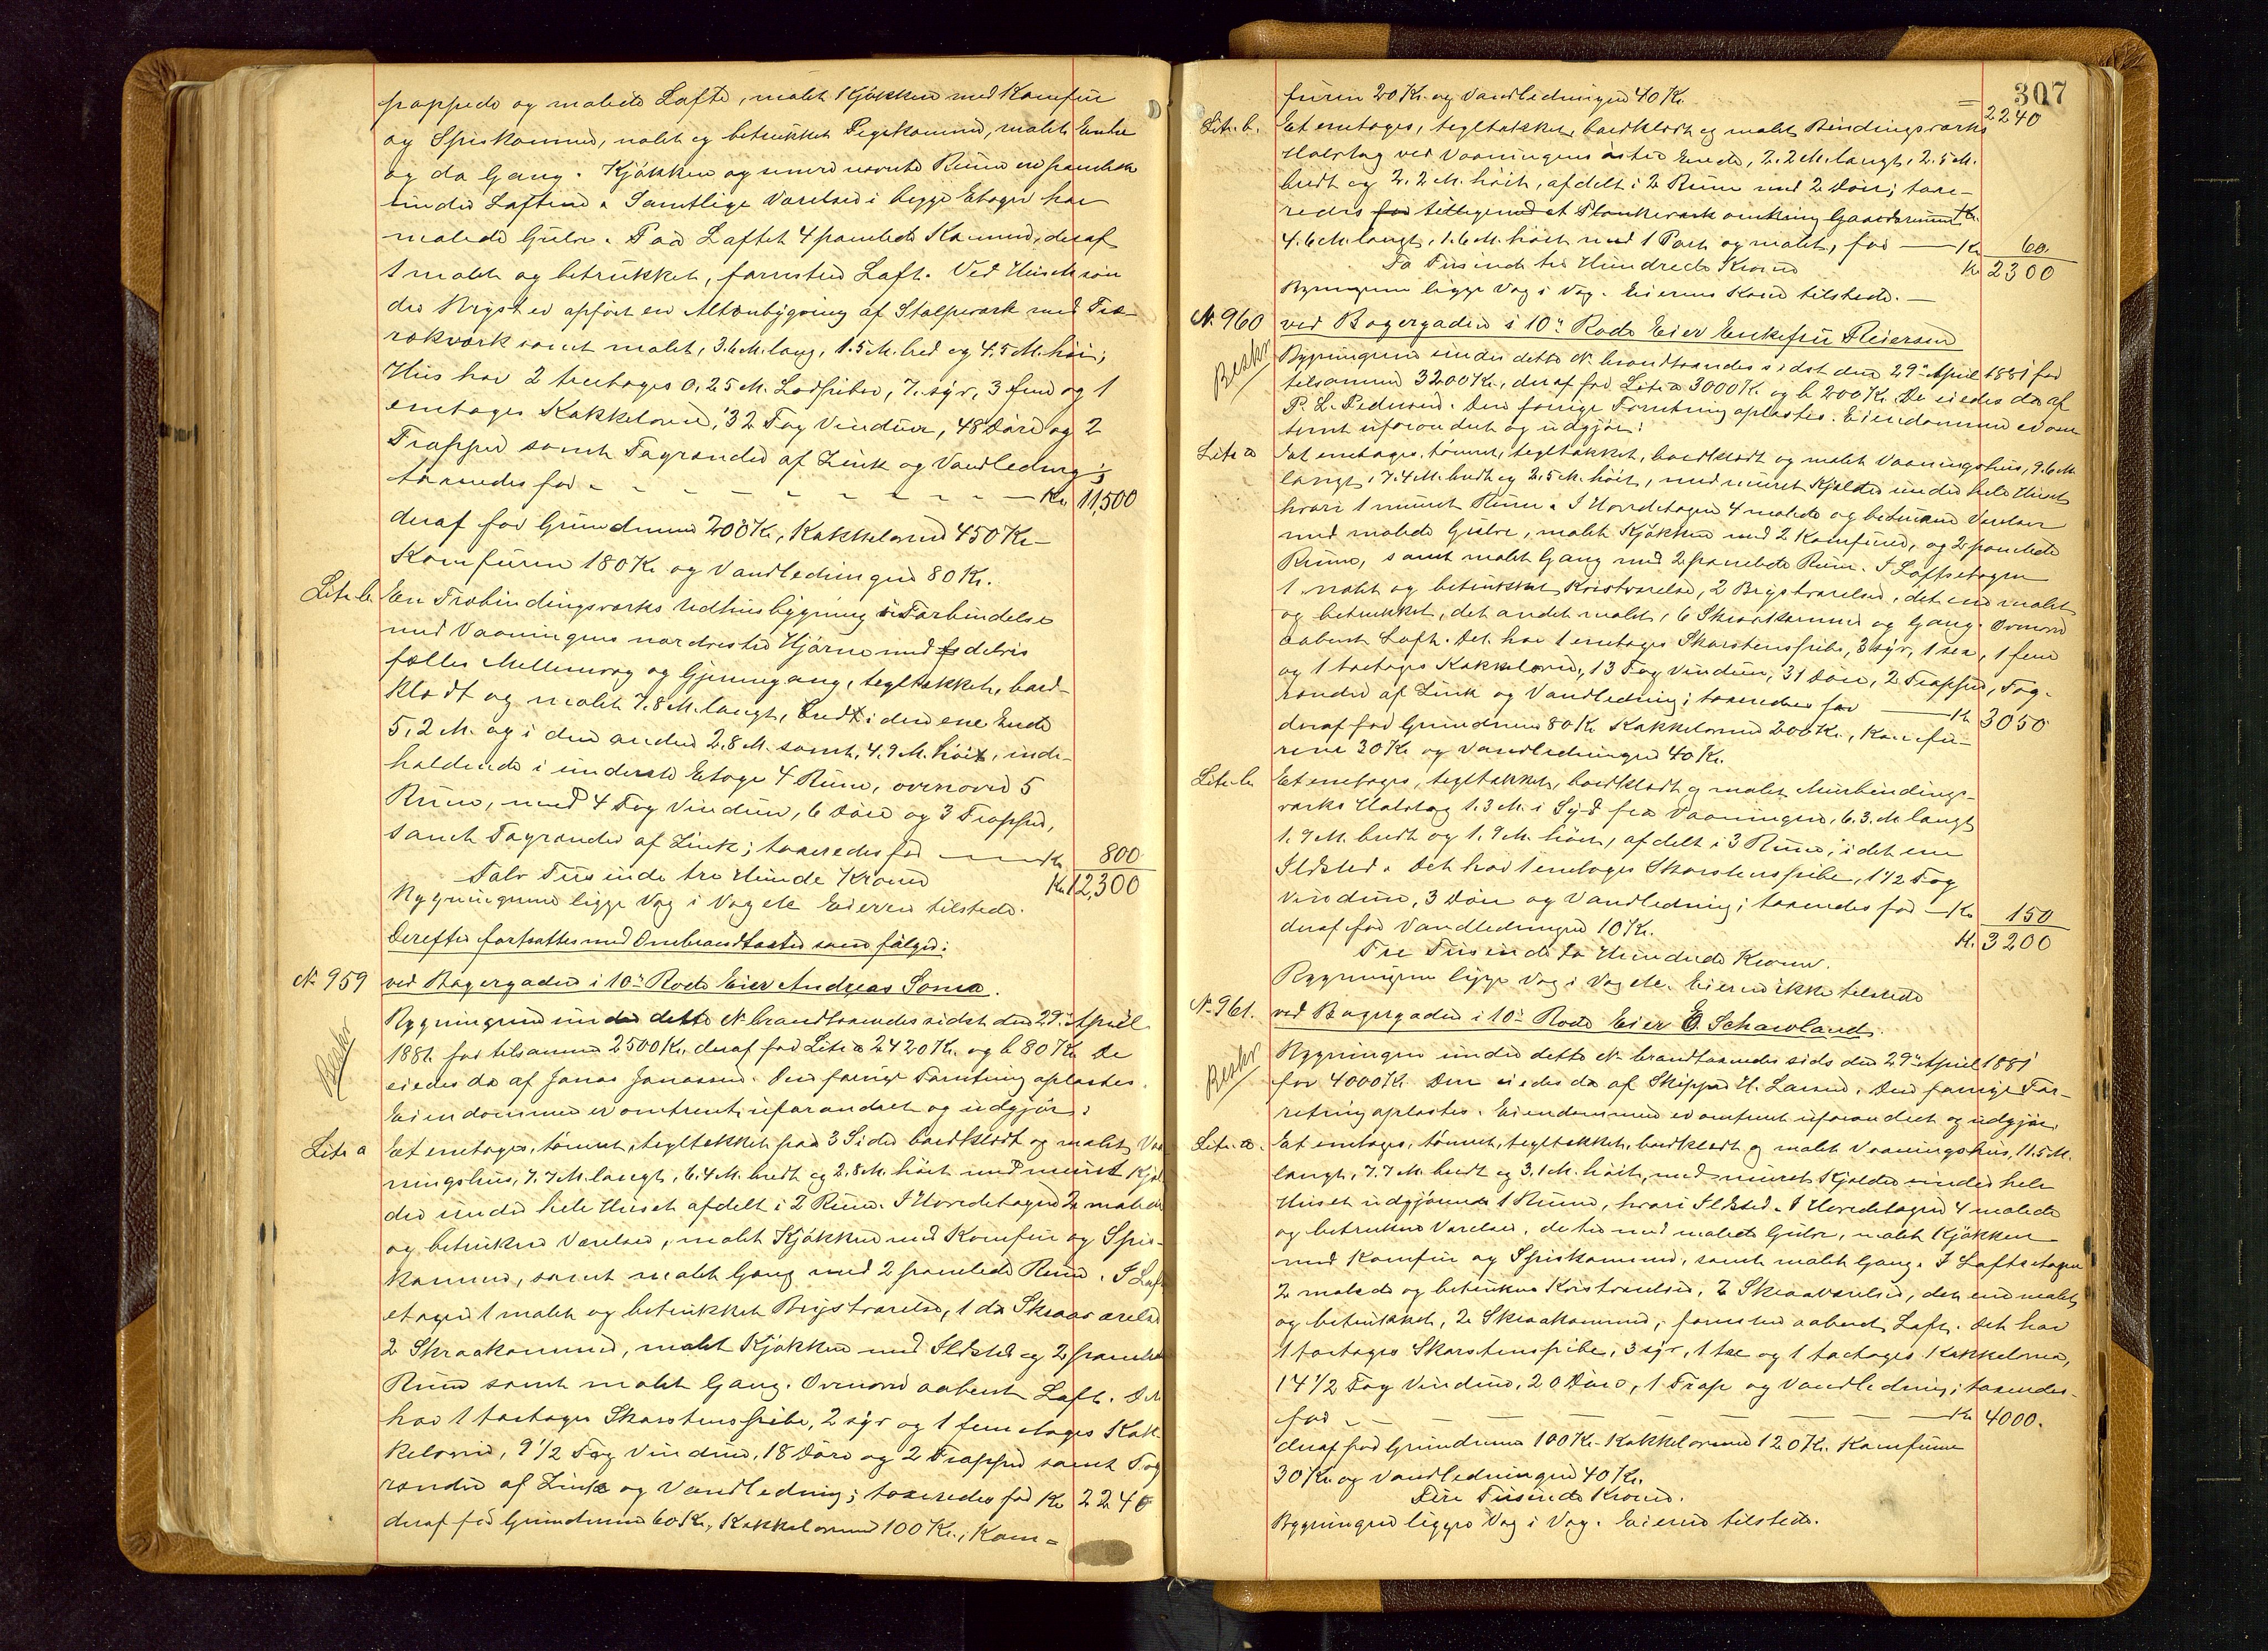 pappede og malede Lofte, malet Kjøkken med Komfur
og Spiskammer, malet og betrukket Pigekammer, malet Entre
og do Gang. Kjøkken og senere nævnte Rum ere panelede
under Loftene. Samtlige Værelser i begge Etager har
malede Gulve. Paa Loftet 4 panelede Kamre, deraf
1 malet og betrukket, forøvrigt Loft. Ved Husets søn
dre Bryst er opført en Altanbygning af Stolpeværk med Træ-
rækværk samt malet, 3.6 M. lang, 1.5 M. bred og 4.5 M. høi;
Hus har 2 treetages 0,25 M. Lodpiber, 7 syv, 3 fem og 1
enetages Kakkelovne, 32 Fag Vinduer, 48 Døre og 2
Trapper samt Tagrender af Zink og Vandledning;
taxeredes for - - - - - - - Kr. 11,500
deraf for Grundmur 200 Kr., Kakkelovne 450 Kr.
Komfurene 180 Kr. og Vandledningen 80 Kr.
Litr. b. En Træbindingsværks Udhusbygning i Forbindelse
med Vaaningens nordøstre Hjørne med delvis
fælles Mellemvæg og Gjennemgang, tegltækket, bord-
klædt og malet 7.8 M. langt, bredt i den ene Ende
5,2 M. og i den anden 2,8 M. samt 4,9 M. høit, inde-
holdende i underste Etage 4 Rum, ovenover 5
Rum, med 4 Fag Vinduer, 6 Døre og 3 Trapper,
samt Tagrender af Zink; taxeredes for — Kr. 800
Tolv Tusinde tre Hunde Kroner Kr. 12,300
Bygningerne ligge Væg i Væg etc Eieren tilstede.
Derefter fortsattes med Ombrandtaxter som følger:
No 959 ved Bagergaden i 10de Rode Eier Andreas Soma.
Beskr
Bygningerne under dette No brandtaxeredes sidst den 29de April
1881 for tilsammen 2500 Kr. deraf for Litr a 2420 Kr. og b 80 Kr. De
eiedes da af Jonas Jonassen. Den forrige Forretning oplæstes.
Eiendommen er omtrent uforandret og udgjør:
Litr a Et enetages, tømret, tegltækket paa 3 Sider bordklædt og malet Vaa-
ningshus, 7.7 M. langt, 6.4 M. bredt og 2.8 M. høit med muret Kjæl
der under hele Huset afdelt i 2 Rum. I Hovedetagen 2 malede
og betrukne Værelser, malet Kjøkken med Komfur og Spis-
kammer, samt malet Gang med 2 panelede Rum. I Loft
etagen 1 malet og betrukket Brystværelse, 1 do Skraaværelse
2 Skraakammer, malet Kjøkken med Ildsted og 2 panelede
Rum samt malet Gang. Ovenover aabent Loft. Det
har 1 toetages Skorstenspibe, 2 syv og 1 fem etages Kak
kelovne, 9 1/2 Fag Vinduer, 18 Døre og 2 Trapper samt Tag
render af Zink og Vandledning; taxeredes for Kr 2240
deraf for Grundmur 60 Kr., Kakkelovne 100 Kr., Kom-
307
furen 20 Kr. og Vandledningen 40 Kr. 2240
Litr. b. Et enetages, tegltækket, bordklædt og malet Bindingsværks
Halvtag ved Vaaningens østre Ende, 2.2 M. langt, 2.5 M.
bredt og 2.2 M. høit, afdelt i 2 Rum med 2 Døre; taxe-
redes for tilligemed et Plankeværk omkring Gaardsrummet
4.6 M. langt, 1.6 M. høit med 1 Port og malet, for — Kr 60
To Tusinde tre Hundrede Kroner Kr 2300
Bygningerne ligge Væg i Væg. Eierens Kone tilstede. —
No 960 ved Bagergaden i 10de Rode Eier Enkefru Reiersen
Beskr
Bygningerne under dette No brandtaxeredes sidst den 29de April 1881 for
tilsammen 3200 Kr., deraf for Litr a 3000 Kr. og b 200 Kr. De eiedes da af
P. L. Pedersen. Den forrige Forretning oplæstes. Eiendommen er om
trent uforandret og udgjør:
Litr a Et enetages, tømret, tegltækket, bordklædt og malet Vaaningshus, 9.6 M.
langt, 7.4 M. bredt og 2.5 M. høit, med muret Kjælder under hele Huset
hvori 1 muret Rum. I Hovedetagen 4 malede og betrukne Værelser
med malede Gulve, malet Kjøkken med 2 Komfurer, og 2 panelede
Rum, samt malet Gang med 2 panelede Rum. I Loftsetagen
1 malet og betrukket Kvistværelse, 2 Brystværelser, det ene malet
og betrukket, det andet malet, 6 Skraakammer og Gang. Ovenover
aabent Loft. Det har 1 enetages Skorstenspibe, 3 syv, 1 sex, 1 fem
og 1 toetages Kakkelovne, 13 Fag Vinduer, 31 Døre, 2 Trapper, Tag-
render af Zink og Vandledning; taxeredes for — Kr. 3050
deraf for Grundmur 80 Kr. Kakkelovne 200 Kr., Komfu-
rene 30 Kr og Vandledningen 40 Kr.
Litr. b. Et enetages, tegltækket, bordklædt og malet Murbindings-
værks Halvtag 1.3 M. i Syd fra Vaaningen, 6.3 M. langt
1.9 M. bredt og 1.9 M. høit, afdelt i 3 Rum, i det ene
Ildsted. Det har 1 enetages Skorstenspibe, 1 1/2 Fag
Vinduer, 3 Døre og Vandledning; taxeredes for — Kr. 150
deraf for Vandledningen 10 Kr. Kr. 3200
Tre Tusinde to Hundrede Kroner.
Bygningerne ligge Væg i Væg etc. Eieren ikke tilstede
No 961. ved Bagergaden i 10de Rode Eier E. Schawland.
Beskr
Bygningen under dette No brandtaxeredes sidst den 29de April 1881
for 4000 Kr. Den eiedes da af Skipper H. Larsen. Den forrige For-
retning oplæstes. Eiendommen er omtrent uforandret og udgjør,
Litr. a. Et enetages, tømret, tegltækket, bordklædt og malet Vaaningshus, 11.5 M.
langt, 7.7 M. bredt og 3.1 M. høit, med muret Kjælder under hele
Huset udgjørende 1 Rum, hvori Ildsted. I Hovedetagen 4 malede
og betrukne Værelser, de tre med malede Gulve, malet Kjøkken
med Komfur og Spiskammer, samt malet Gang. I Loftsetagen
2 malede og betrukne Kvistværelser, 2 Skraaværelser, det ene malet
og betrukket, 2 Skraakammer, forøvrigt aabent Loft. Det har
1 toetages Skorstenspibe, 3 syv, 1 tre og 1 toetages Kakkelovne,
14 1/2 Fag Vinduer, 20 Døre, 1 Trap og Vandledning; taxeredes
for - - - - - - - Kr. 4000.
deraf for Grundmur 100 Kr. Kakkelovne 120 Kr. Komfuren
30 Kr. og Vandledningen 40 Kr.
Fire Tusinde Kroner.
Bygningen ligger Væg i Væg. Eieren tilstede.